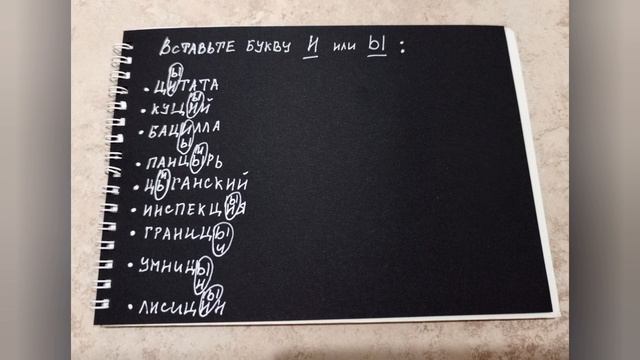 ВСТАВЬТЕ БУКВУ И ИЛИ Ы :
Ы
• ЦИТАТА
Ы
• КУЦИЙ
• БАЦИЛЛА
Ы
И
• ПАНЦЫРЬ
И
• ЦЫГАНСКИЙ
Ы
• ИНСПЕКЦИЯ
• ГРАНИЦЫ
И
• УМНИЦЫ
И
Ы
• ЛИСИЦИН